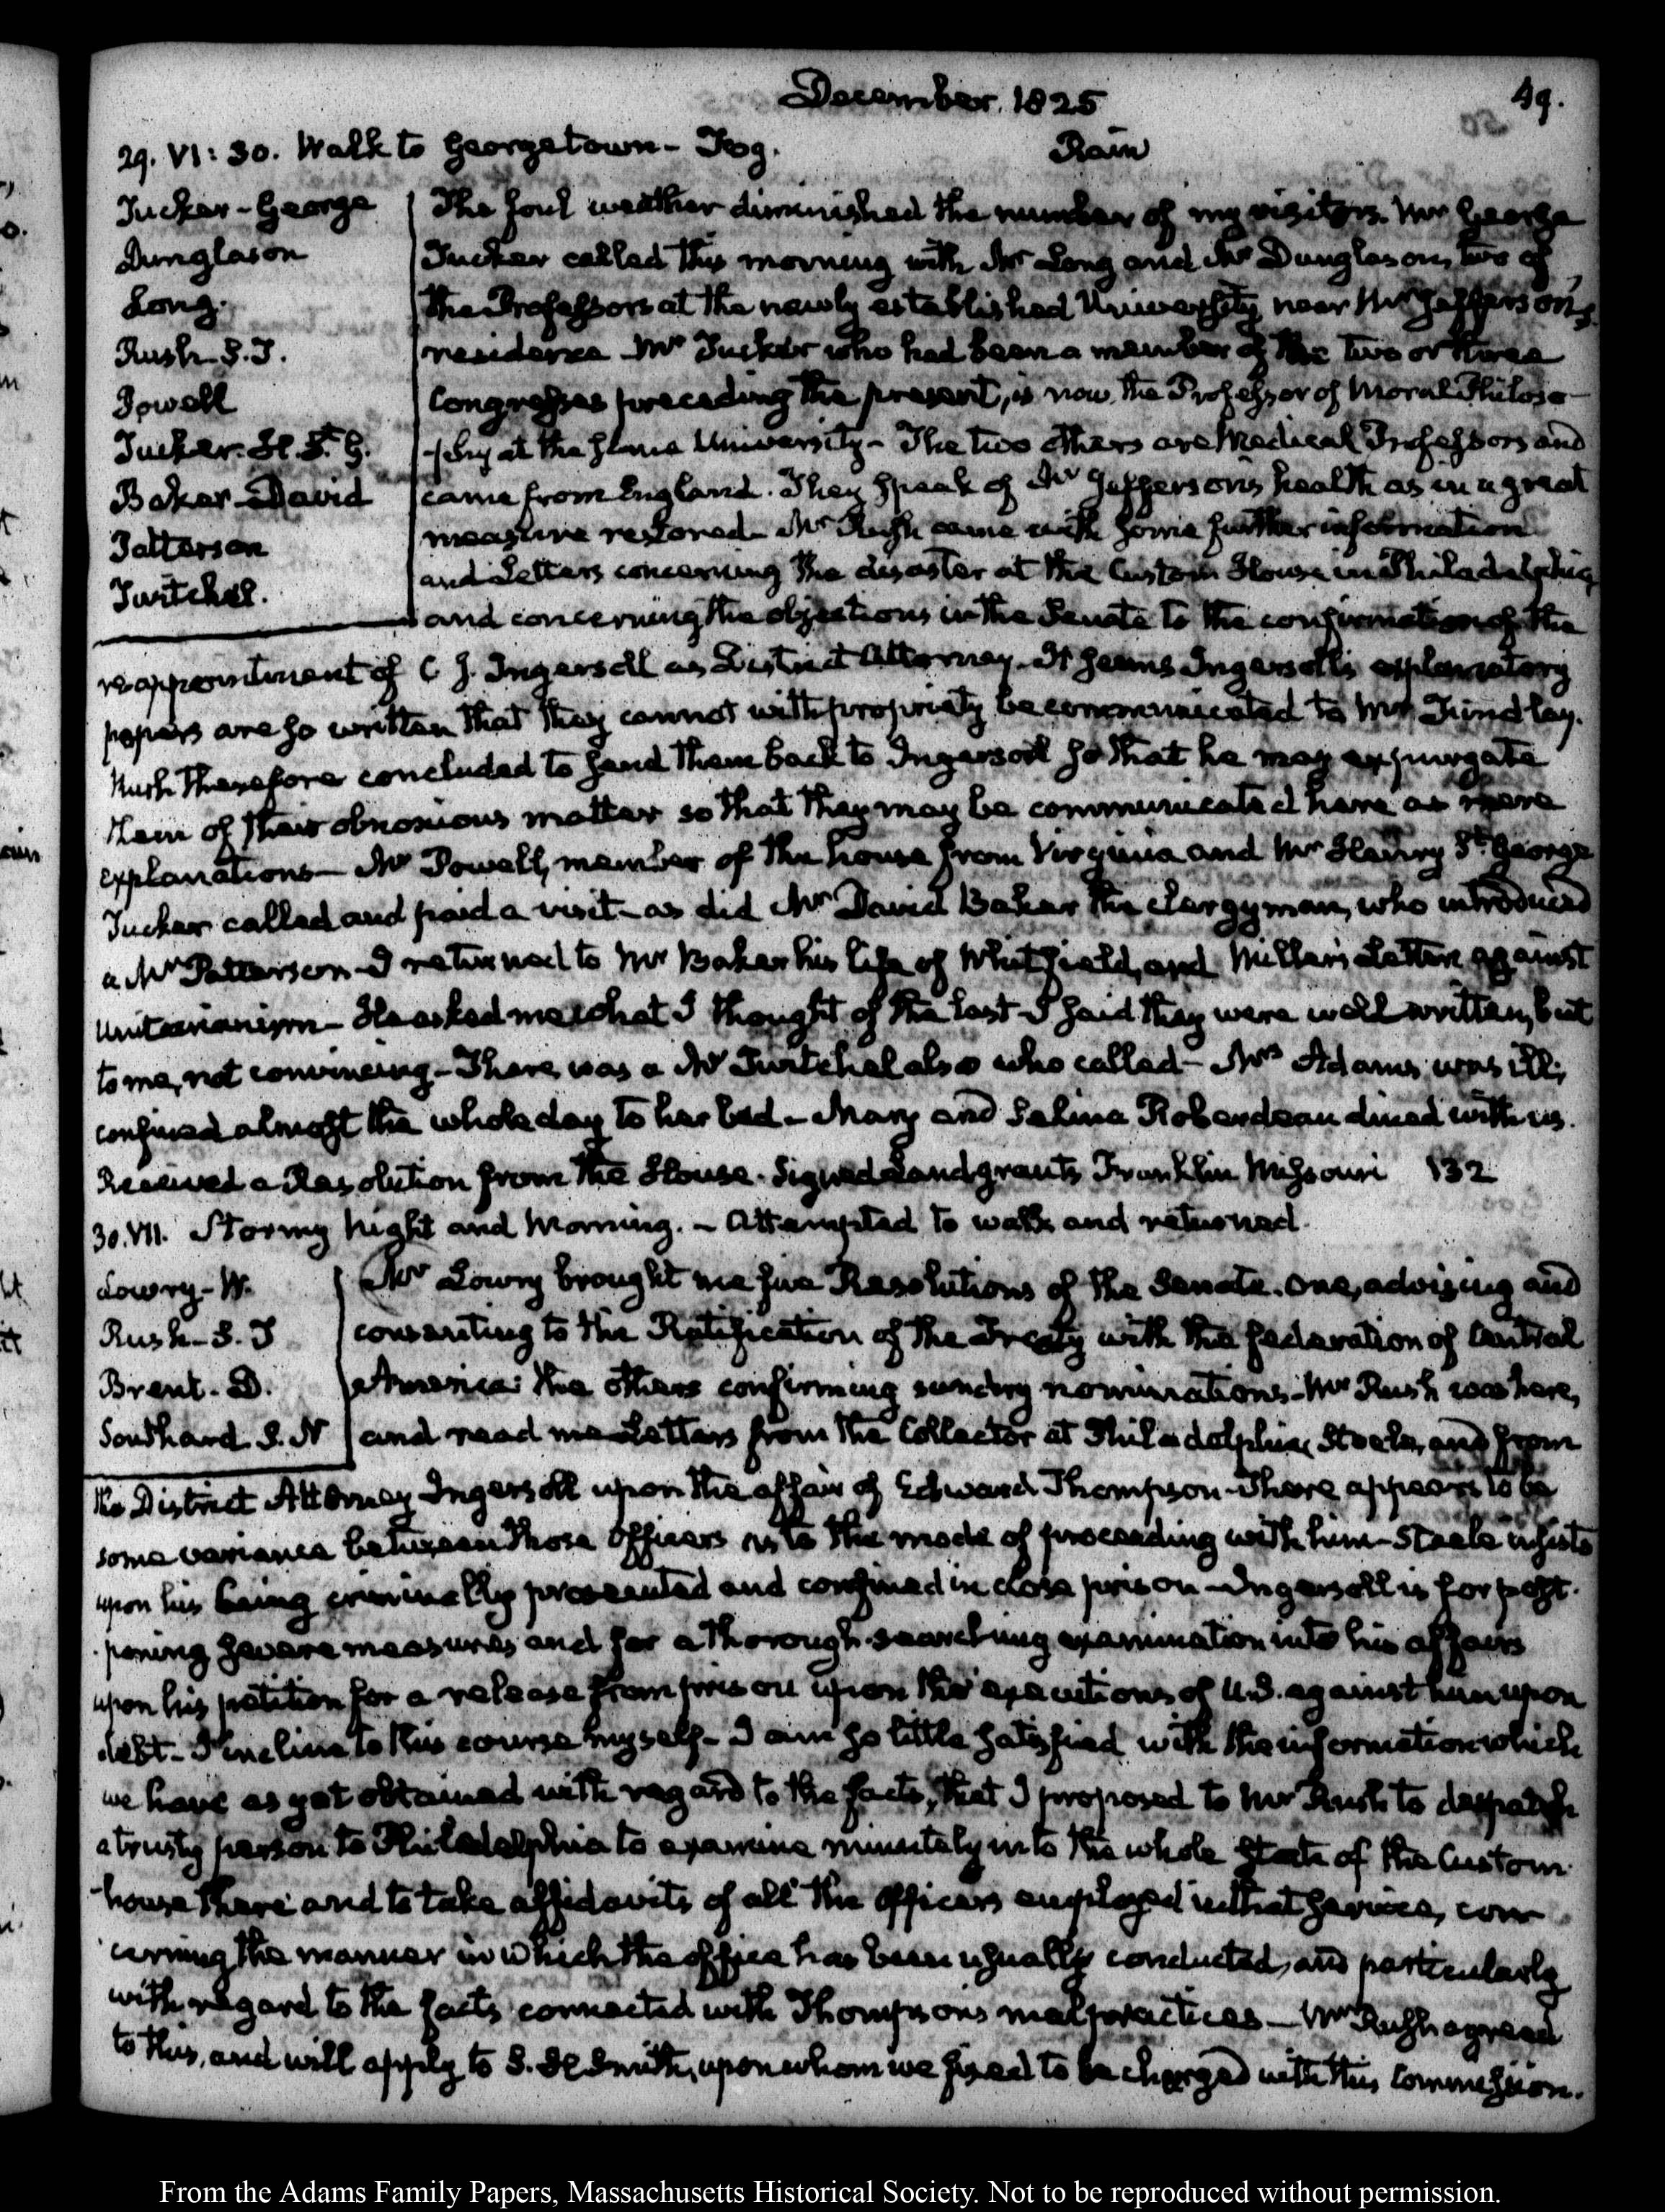 December 1825
49.
29. VI: 30. Walk to Georgetown - Fog. Rain
Tucker - George
Dunglason
Long.
Rush. S.T.
Powell
Tucker. H. St. G.
Baker - David
Patterson
Twitchel.
The foul weather diminished the number of my visitors. Mr George
Tucker called this morning with Mr Long and Mr Dunglason, two of
the Professors at the newly established University near Mr Jefferson's
residence - Mr Tucker who had been a member of the two or three
Congresses preceding the present, is now the Professor of Moral Philoso-
-phy at the same University - The two others are Medical Professors and
came from England. They speak of Mr Jefferson's health as in a great
measure restored - Mr Rush came with some further information
and Letters concerning the disaster at the Custom House in Philadelphia,
and concerning the objections in the Senate to the confirmation of the
reappointment of C J. Ingersoll as District Attorney. It seems Ingersoll's explanatory
papers are so written that they cannot with propriety be communicated to Mr Findlay.
Rush therefore concluded to send them back to Ingersoll so that he may expurgate
them of their obnoxious matter so that they may be communicated here as mere
explanations - Mr Powell, member of the house from Virginia and Mr Henry St. George
Tucker called and paid a visit - as did Mr David Baker the clergyman, who introduced
a Mr Patterson - I returned to Mr Baker his life of Whitfield, and Miller's Letters against
Unitarianism - He asked me what I thought of the last - I said they were well written, but
to me, not convincing - There was a Mr Twitchel also who called - Mrs Adams was ill;
confined almost the whole day to her bed - Mary and Selina Roberdeau dined with us.
Received a Resolution from the House. Signed Land grants Franklin Missouri 132
30. VII. Stormy night and Morning. - Attempted to walk and returned.
Lowry - W.
Rush - S. T
Brent. D.
Southard S. N
Mr Lowry brought me five Resolutions of the Senate. One, advising and
consenting to the Ratification of the Treaty with the federation of Central
America: the others confirming sundry nominations - Mr Rush was here,
and read me Letters from the Collector at Philadelphia, Steele, and from
the District Attorney Ingersoll upon the affair of Edward Thompson - There appears to be
some variance between those Officers as to the mode of proceeding with him - Steele insists
upon his being criminally prosecuted and confined in close prison - Ingersoll is for post-
-poning severe measures and for a thorough-searching examination into his affairs
upon his petition for a release from prison upon the executions of U.S. against him upon
debt - I incline to this course myself - I am so little satisfied with the information which
we have as yet obtained with regard to the facts, that I proposed to Mr Rush to despatch
a trusty person to Philadelphia to examine minutely into the whole State of the Custom
house there and to take affidavits of all the Officers employed in that service, con
cerning the manner in which the office has been usually conducted, and particularly
with regard to the facts connected with Thompson's malpractices - Mr Rush agreed
to this, and will apply to S. H Smith, upon whom we fixed to be charged with this Commission.
From the Adams Family Papers, Massachusetts Historical Society. Not to be reproduced without permission.